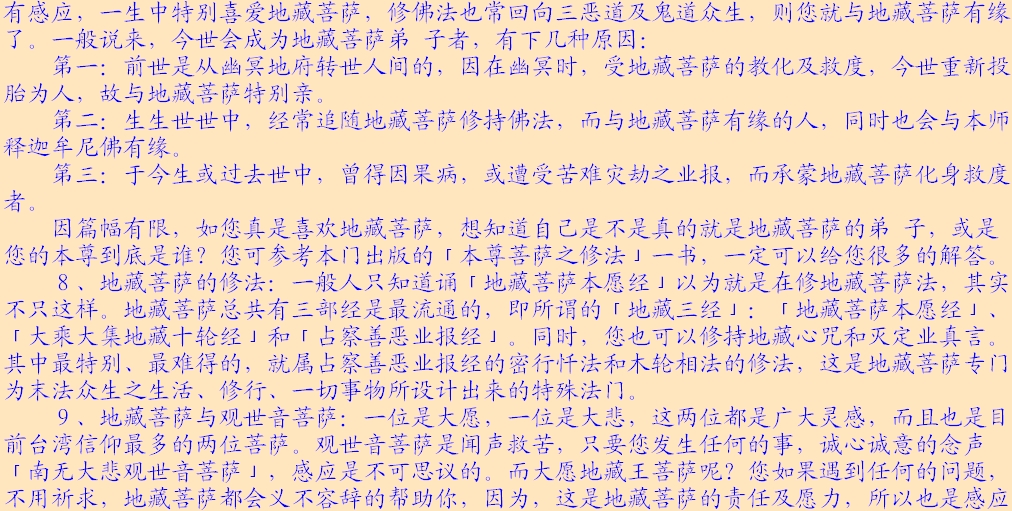 有感应，一生中特别喜爱地藏菩萨，修佛法也常回向三恶道及鬼道众生，则您就与地藏菩萨有缘
了。一般说来，今世会成为地藏菩萨弟 子者，有下几种原因：
第一：前世是从幽冥地府转世人间的，因在幽冥时，受地藏菩萨的教化及救度，今世重新投
胎为人，故与地藏菩萨特别亲。
第二：生生世世中，经常追随地藏菩萨修持佛法，而与地藏菩萨有缘的人，同时也会与本师
释迦牟尼佛有缘。
第三：于今生或过去世中，曾得因果病，或遭受苦难灾劫之业报，而承蒙地藏菩萨化身救度
者。
因篇幅有限，如您真是喜欢地藏菩萨，想知道自己是不是真的就是地藏菩萨的弟 子，或是
您的本尊到底是谁？您可参考本门出版的「本尊菩萨之修法」一书，一定可以给您很多的解答。
8、地藏菩萨的修法：一般人只知道诵「地藏菩萨本愿经」以为就是在修地藏菩萨法，其实
不只这样。地藏菩萨总共有三部经是最流通的，即所谓的「地藏三经」：「地藏菩萨本愿经」、
「大乘大集地藏十轮经」和「占察善恶业报经」。同时，您也可以修持地藏心咒和灭定业真言。
其中最特别、最难得的，就属占察善恶业报经的密行忏法和木轮相法的修法，这是地藏菩萨专门
为末法众生之生活、修行、一切事物所设计出来的特殊法门。
9、地藏菩萨与观世音菩萨：一位是大愿，一位是大悲，这两位都是广大灵感，而且也是目
前台湾信仰最多的两位菩萨。观世音菩萨是闻声救苦，只要您发生任何的事，诚心诚意的念声
「南无大悲观世音菩萨」，感应是不可思议的。而大愿地藏王菩萨呢？您如果遇到任何的问题，
不用祈求，地藏菩萨都会义不容辞的帮助你，因为，这是地藏菩萨的责任及愿力，所以也是感应